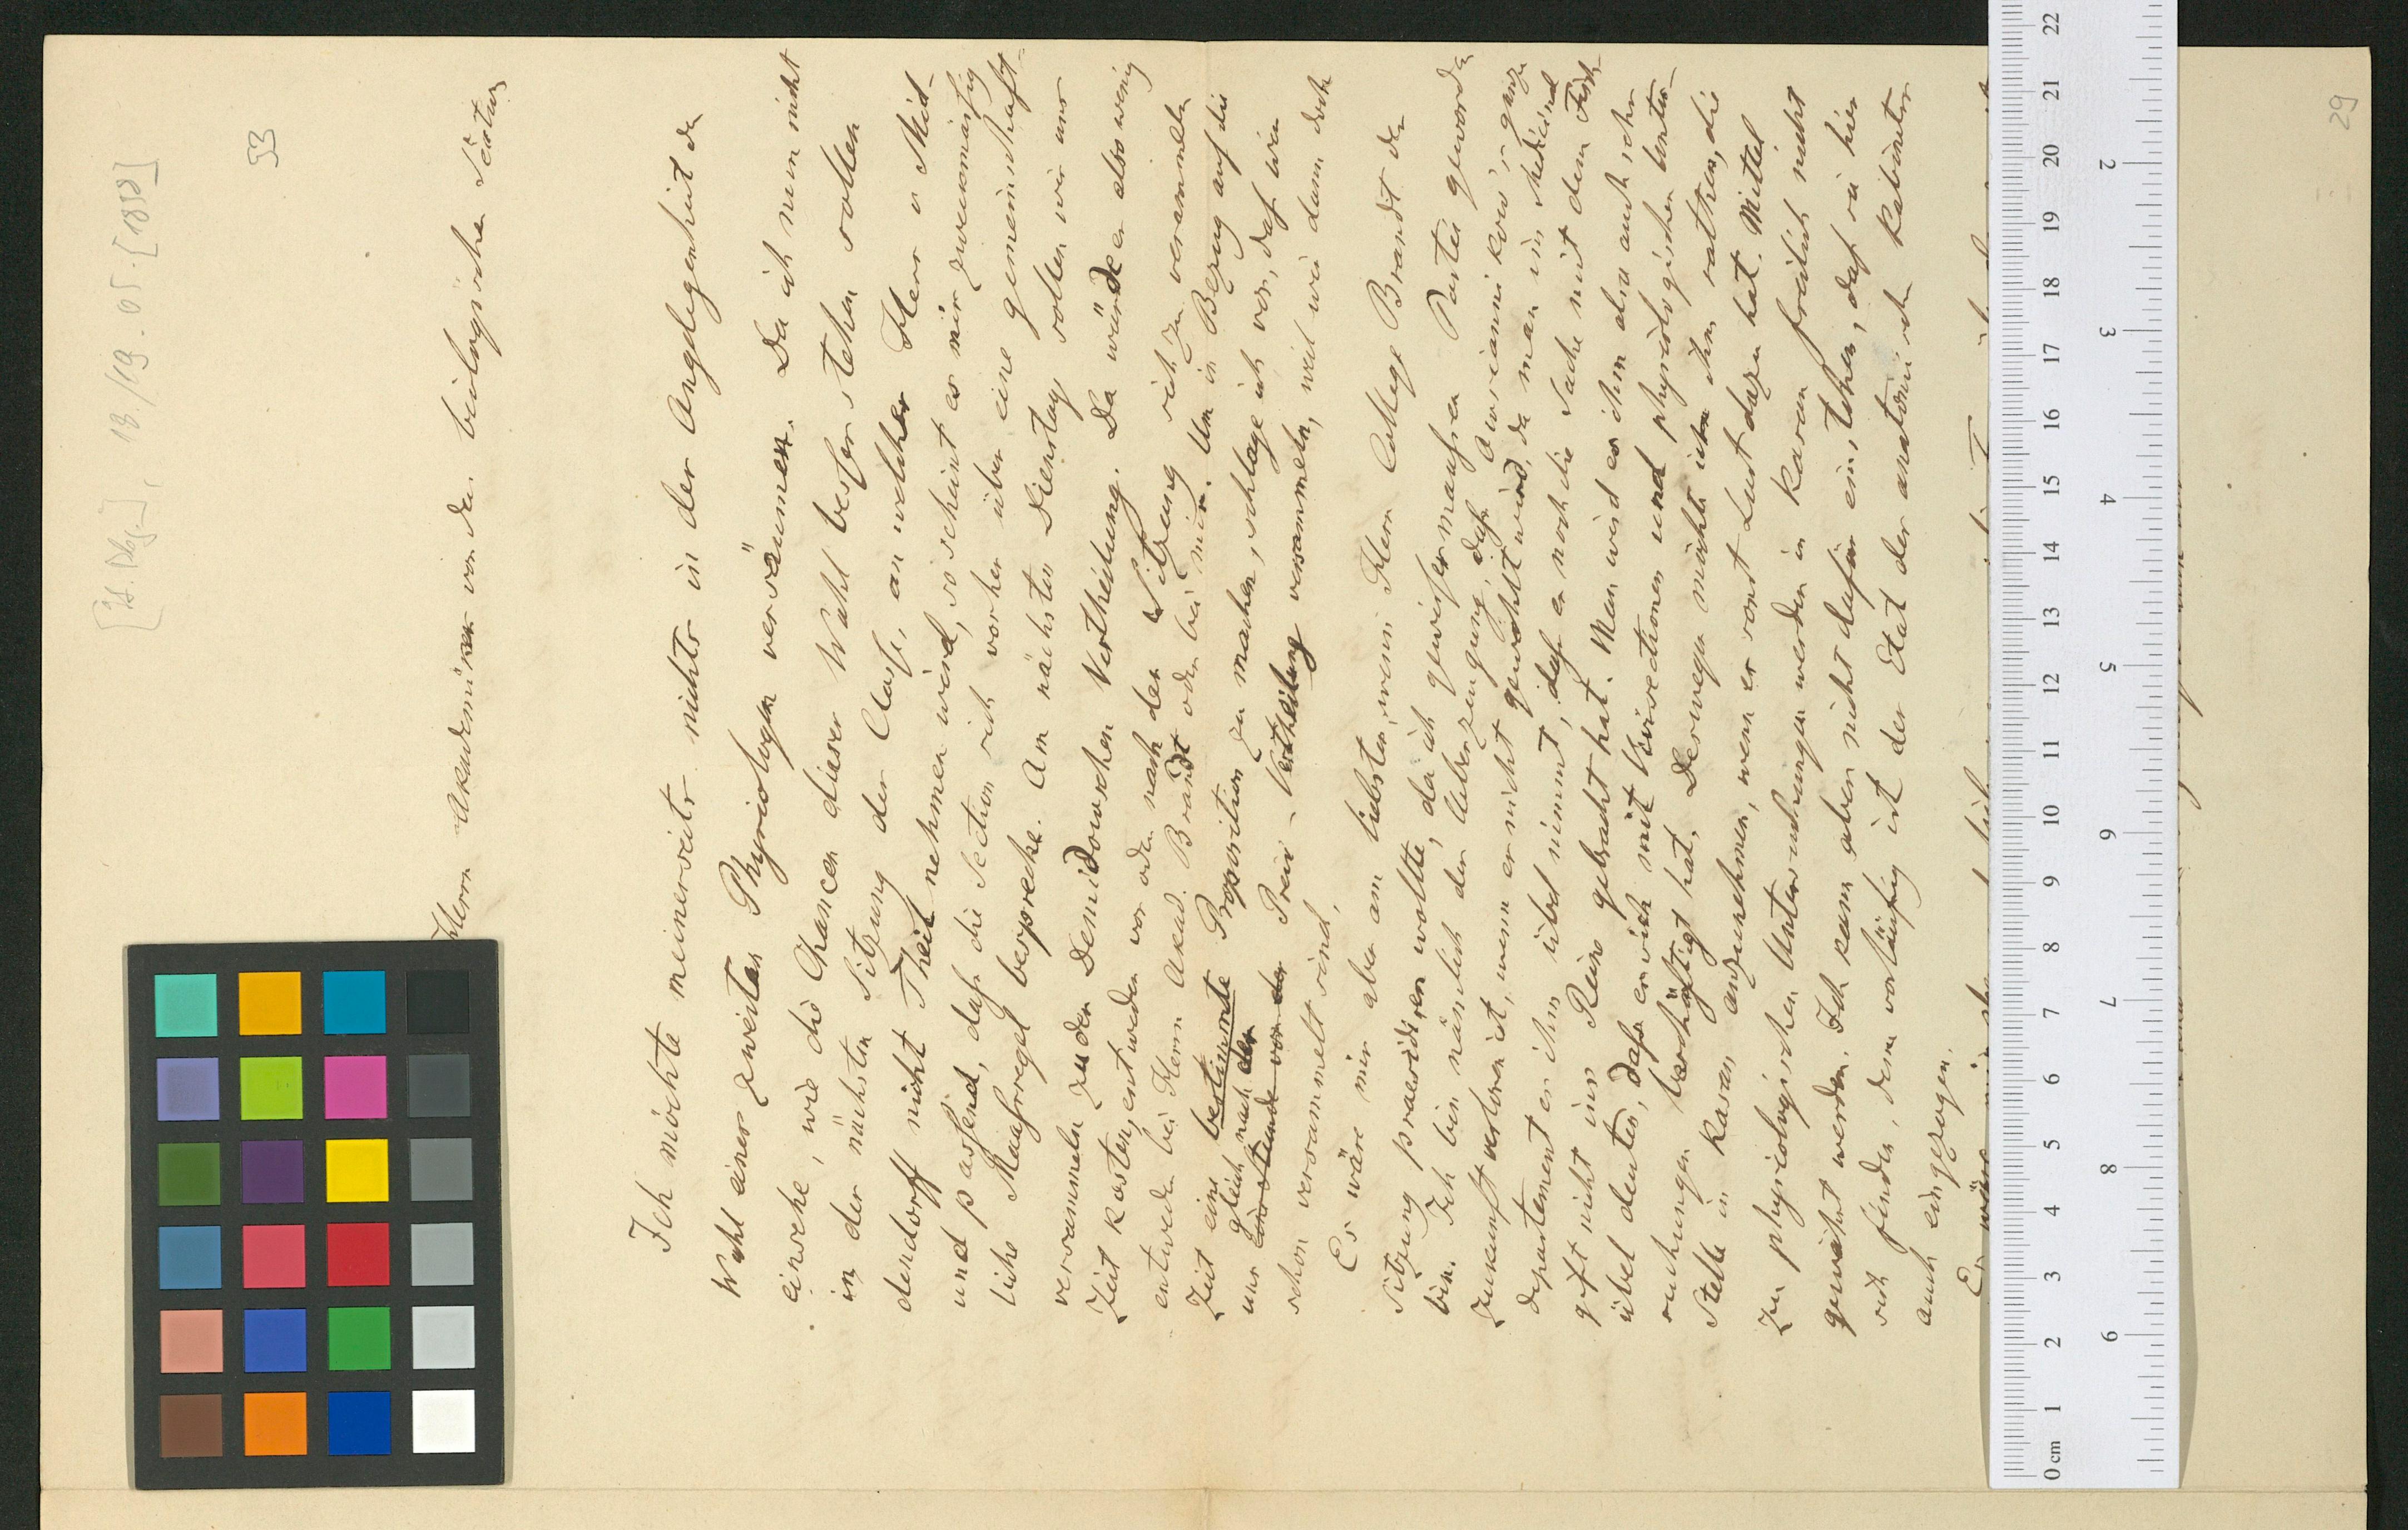 [St. Pbg], 13./19.05.[1858]
53
29
Herrn Akademiker von der biologischen Section
Ich möchte meinerseits nichts in der Angelegenheit der
Wahl eines zweiten Physiologen versäumen. Da ich nun nicht
einsehe, wie die Chancen dieser Wahl besser stehen sollen
in der nächsten Sitzung der Classe, an welcher Herr v. Mid-
dendorff nicht Theil nehmen wird, so scheint es mir zweckmässig
und passend, dass die Section sich vorher über eine gemeinschaft-
liche Maassregel bespreche. Am nächsten Dienstag sollen wir uns
versammeln zu der Demidowschen Vertheilung. Da würde es also wenig
Zeit kosten, entweder vor oder nach der Sitzung sich zu versammeln
entweder bei Herrn Akad. Brandt oder bei mir. Um in Bezug auf die
Zeit eine bestimmte Proposition zu machen, schlage ich vor, dass wir
uns eine Stunde vor der gleich nach der Preis-Vertheilung versammeln, weil wir dann doch
schon versammelt sind.
Es wäre mir aber am liebsten, wenn Herr College Brandt der
Sitzung praesidiren wollte, da ich gewissermaassen Partei geworden
bin. Ich bin nämlich der Ueberzeugung, dass Owsiannikow's ganze
Zukunft verloren ist, wenn er nicht gewählt wird, da man im Medicinal
departement es ihm übel nimmt, dass er noch die Sache mit dem Fisch-
gift nicht ins Reine gebracht hat. Man wird es ihm also auch sehr
übel deuten, dass er sich mit Vivisectionen und physiologischen Unter-
suchungen beschäftigt hat. Deswegen möchte ich ihm rathen, die
Stelle in Kasan anzunehmen, wenn er sonst Lust dazu hat. Mittel
zu physiologischen Untersuchungen werden in Kasan freilich nicht
gewährt werden. Ich kann aber nicht dafür einstehen, dass sie hier
sich finden, denn vorläufig ist der Etat des anatomischen Kabinetes
auch eingezogen.
Es wäre
0 cm 1 2 3 4 5 6 7 8 9 10 11 12 13 14 15 16 17 18 19 20 21 22
2 3 4 5 6 7 8 9